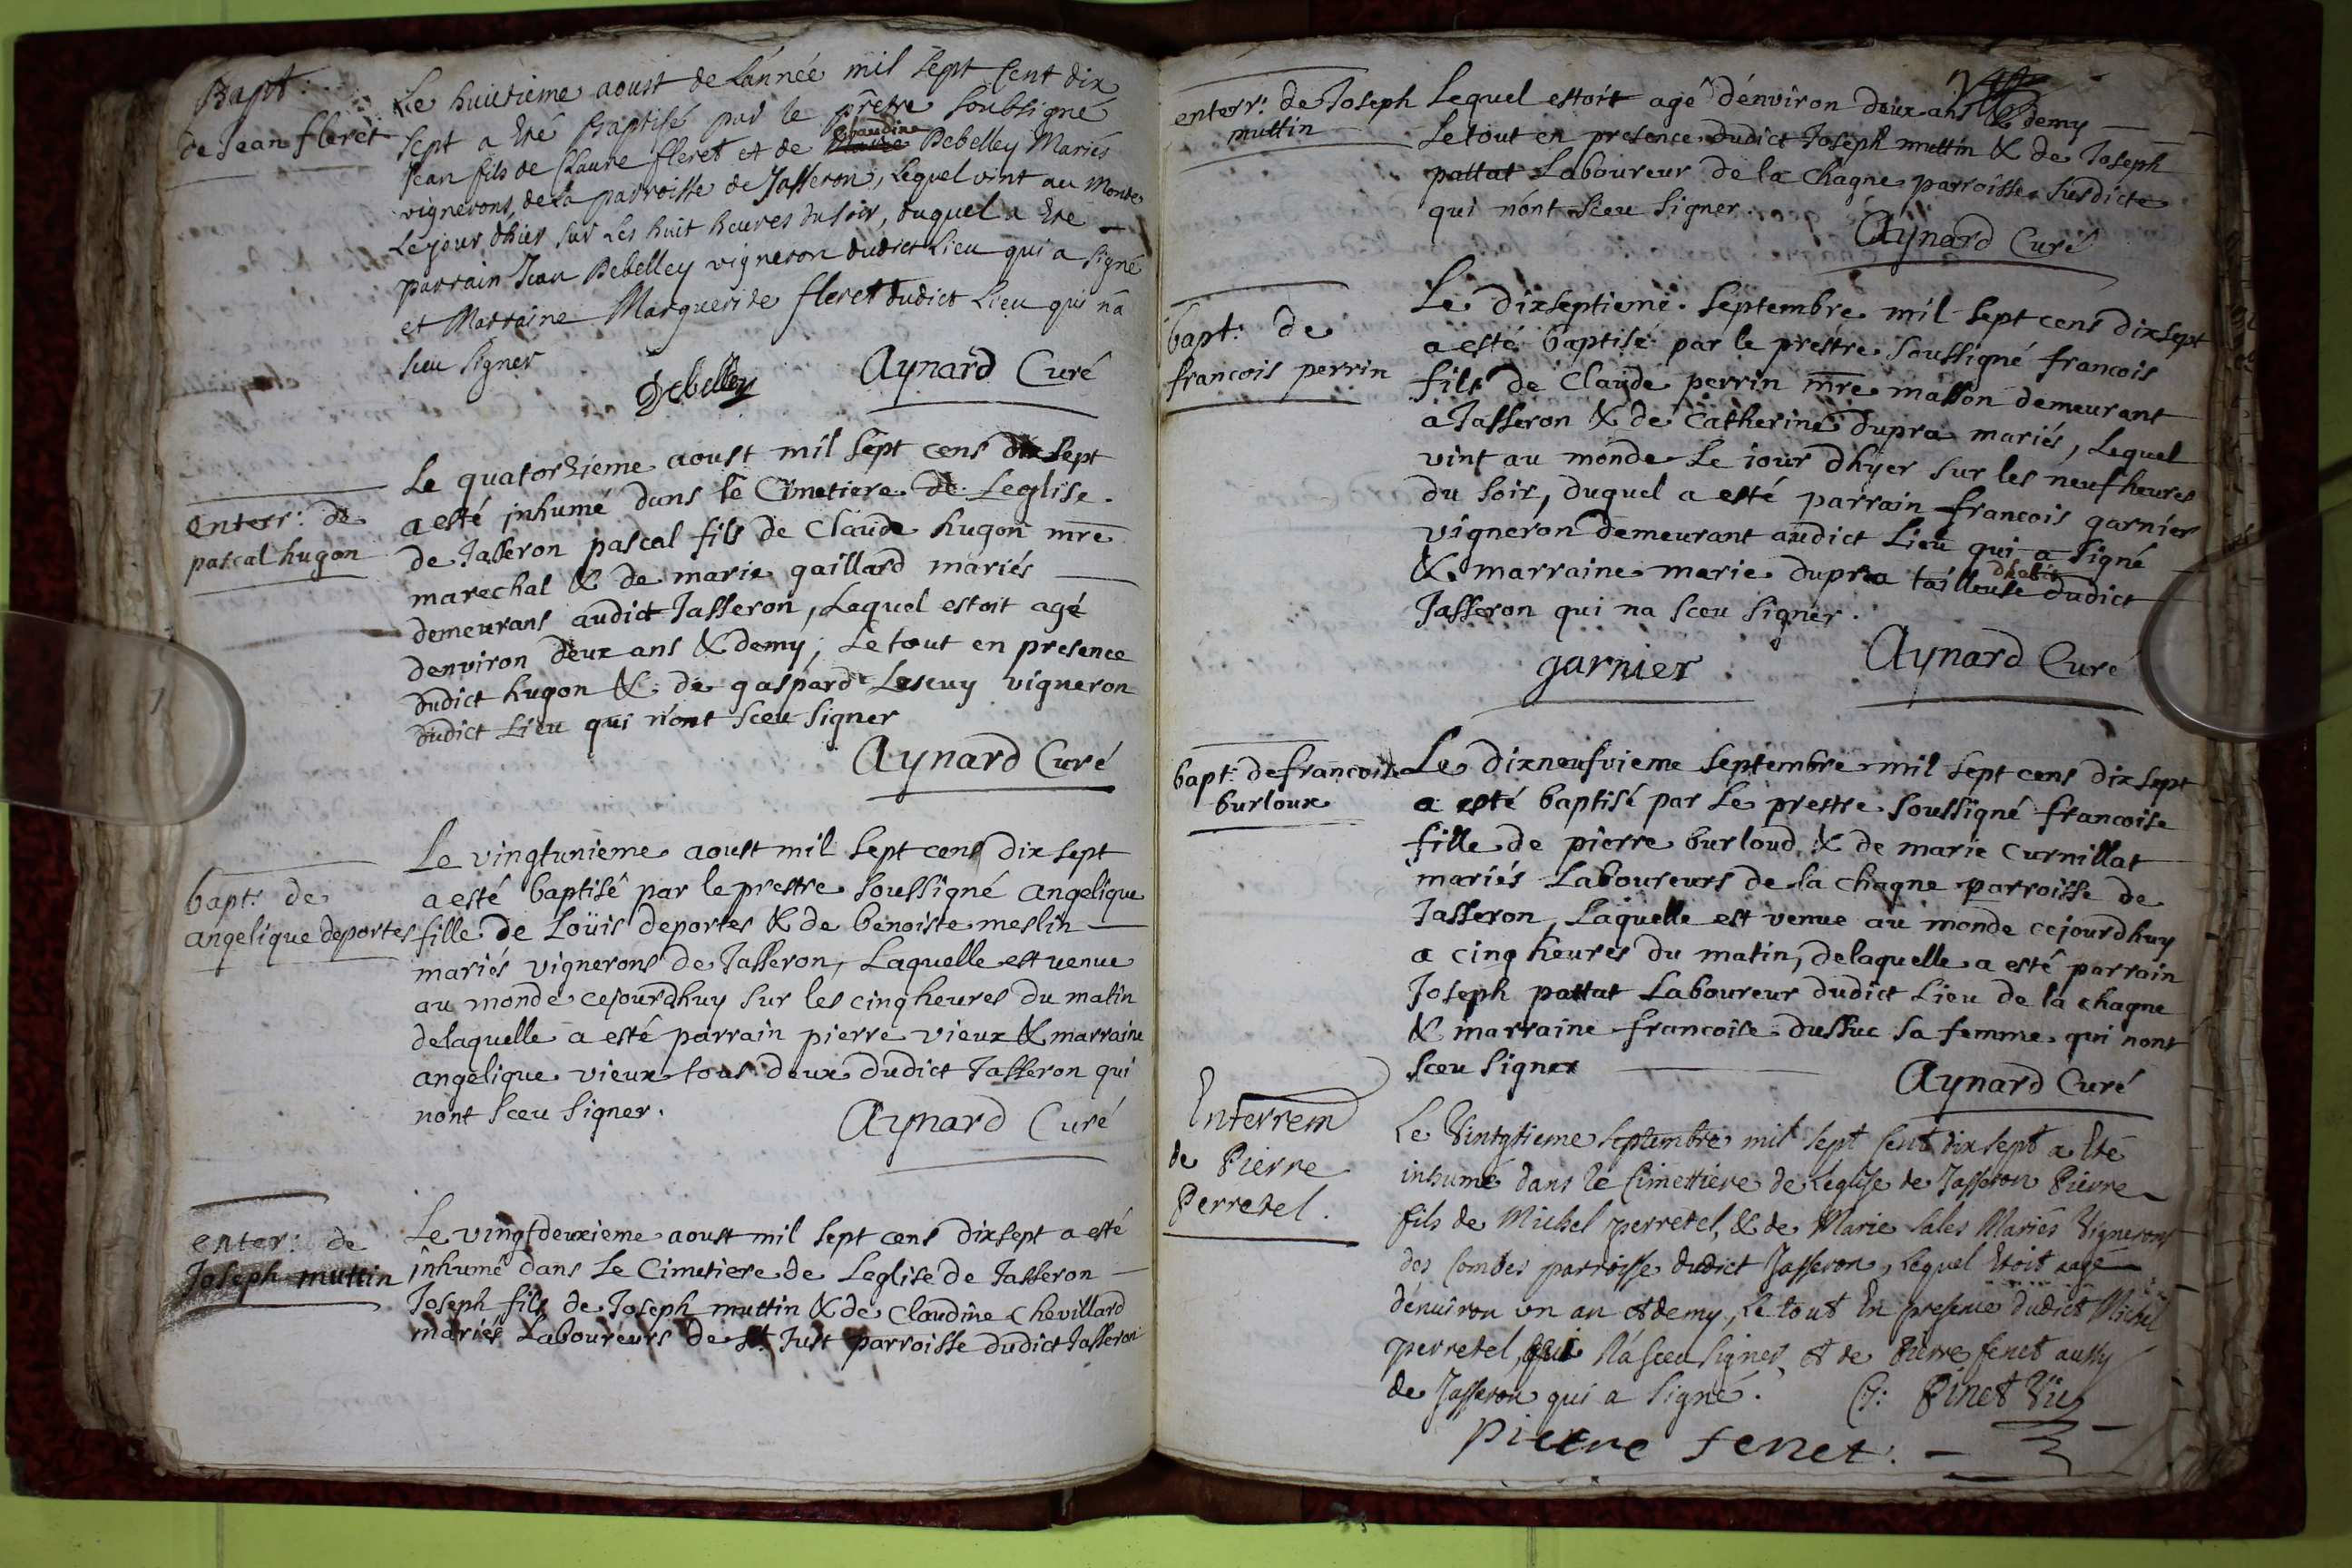 Bapt:
de Jean fleret
Le huictieme aoust de Lánnée mil sept cent dix
sept a Eté Baptisé par le prêtre soubsigné
Jean fils de Claude fleret et de Claudine Debelley Mariés
vignerons, de la parroisse de Jasseron, Lequel vint au Monde
Le jour d'hier sur Les huit heures du soir, duquel a Ete
parrain Jean Debelley vigneron dudict Lieu qui a signé
et Marraine Marguerite fleret dudict Lieu qui n'a
sceu signer
Debelley Aynard Curé
enterr: de
pascal hugon
Le quatorzieme aoust mil sept cens dix sept
a esté jnhumé dans le Cimetiere de Leglise
de Jasseron pascal fils de Claude hugon mre
marechal & de marie gaillard mariés
demeurans audict Jasseron, Lequel estoit agé
denviron deux ans & demy, Le tout en presence
dudict hugon & de gaspard Lescuy vigneron
dudict Lieu qui n'ont sceu signer
Aynard Curé
bapt: de
angelique deportes
Le vingtunieme aoust mil sept cens dix sept
a esté baptisé par le prestre soussigné angelique
fille de Loüis deportes & de benoiste meslin
mariés vignerons de Jasseron, Laquelle est venue
au monde cejourdhuy sur les cinq heures du matin
delaquelle a esté parrain pierre vieux & marraine
angelique vieux tous deux dudict Jasseron qui
nont sceu signer.
Aynard Curé
enter: de
Joseph muttin
Le vingtdeuxieme aoust mil sept cens dixsept a esté
jnhumé dans Le Cimetiere de Leglise de Jasseron
Joseph fils de Joseph muttin & de Claudine Chevillard
mariés Laboureurs de St Just parroisse dudict Jasseron
enterr: de Joseph
muttin
Lequel estoit agé d'environ deux ans & demy
Le tout en presence dudict Joseph muttin & de Joseph
pattat Laboureur de la Chagne parroisse susdicte
qui n'ont sceu signer.
Aynard Curé
bapt: de
francois perrin
Le dixseptieme septembre mil sept cens dixsept
a esté baptisé par le prestre soussigné francois
fils de Claude perrin mre masson demeurant
a Jasseron & de Catherine dupra mariés, Lequel
vint au monde Le jour dhyer sur les neuf heures
du soir, duquel a esté parrain francois garnier
vigneron demeurant audict Lieu qui a signé
& marraine marie dupra tailleuse dhabit dudict
Jasseron qui na sceu signer.
garnier Aynard Curé
bapt: de francoise
burloux
Le dixneufvieme septembre mil sept cens dixsept
a esté baptisé par Le prestre soussigné francoise
fille de pierre burloud & de marie Curnillat
mariés Laboureurs de la Chagne parroisse de
Jasseron, Laquelle est venue au monde cejourdhuy
a cinq heures du matin, delaquelle a esté parrain
Joseph pattat Laboureur dudict Lieu de la Chagne
& marraine francoise dussuc sa femme qui nont
sceu signer
Aynard Curé
Enterrem
de Pierre
Perretel.
Le Vintgtieme septembre mil sept Cent dix sept a Eté
inhumé dans le Cimettiere de Leglise de Jasseron Pierre
fils de Michel perretel, & de Marie Sales Mariés Vignerons
des Combes parroisse dudict Jasseron, Lequel Etoit agé
dénuiron vn an et demy, Le tout En presence dudict Michel
perretel, qui n'a sceu signer et de Pierre fenet aussy
de Jasseron qui a signé. C: Pinet Vic
pierre fenet.